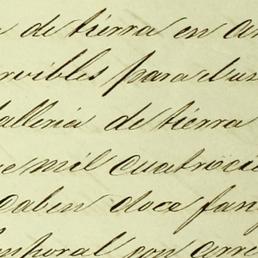 de tierra en a
rvibles para el us
alleria de tierra
e mil cuatrocie
caben doce fan
mporal con arre